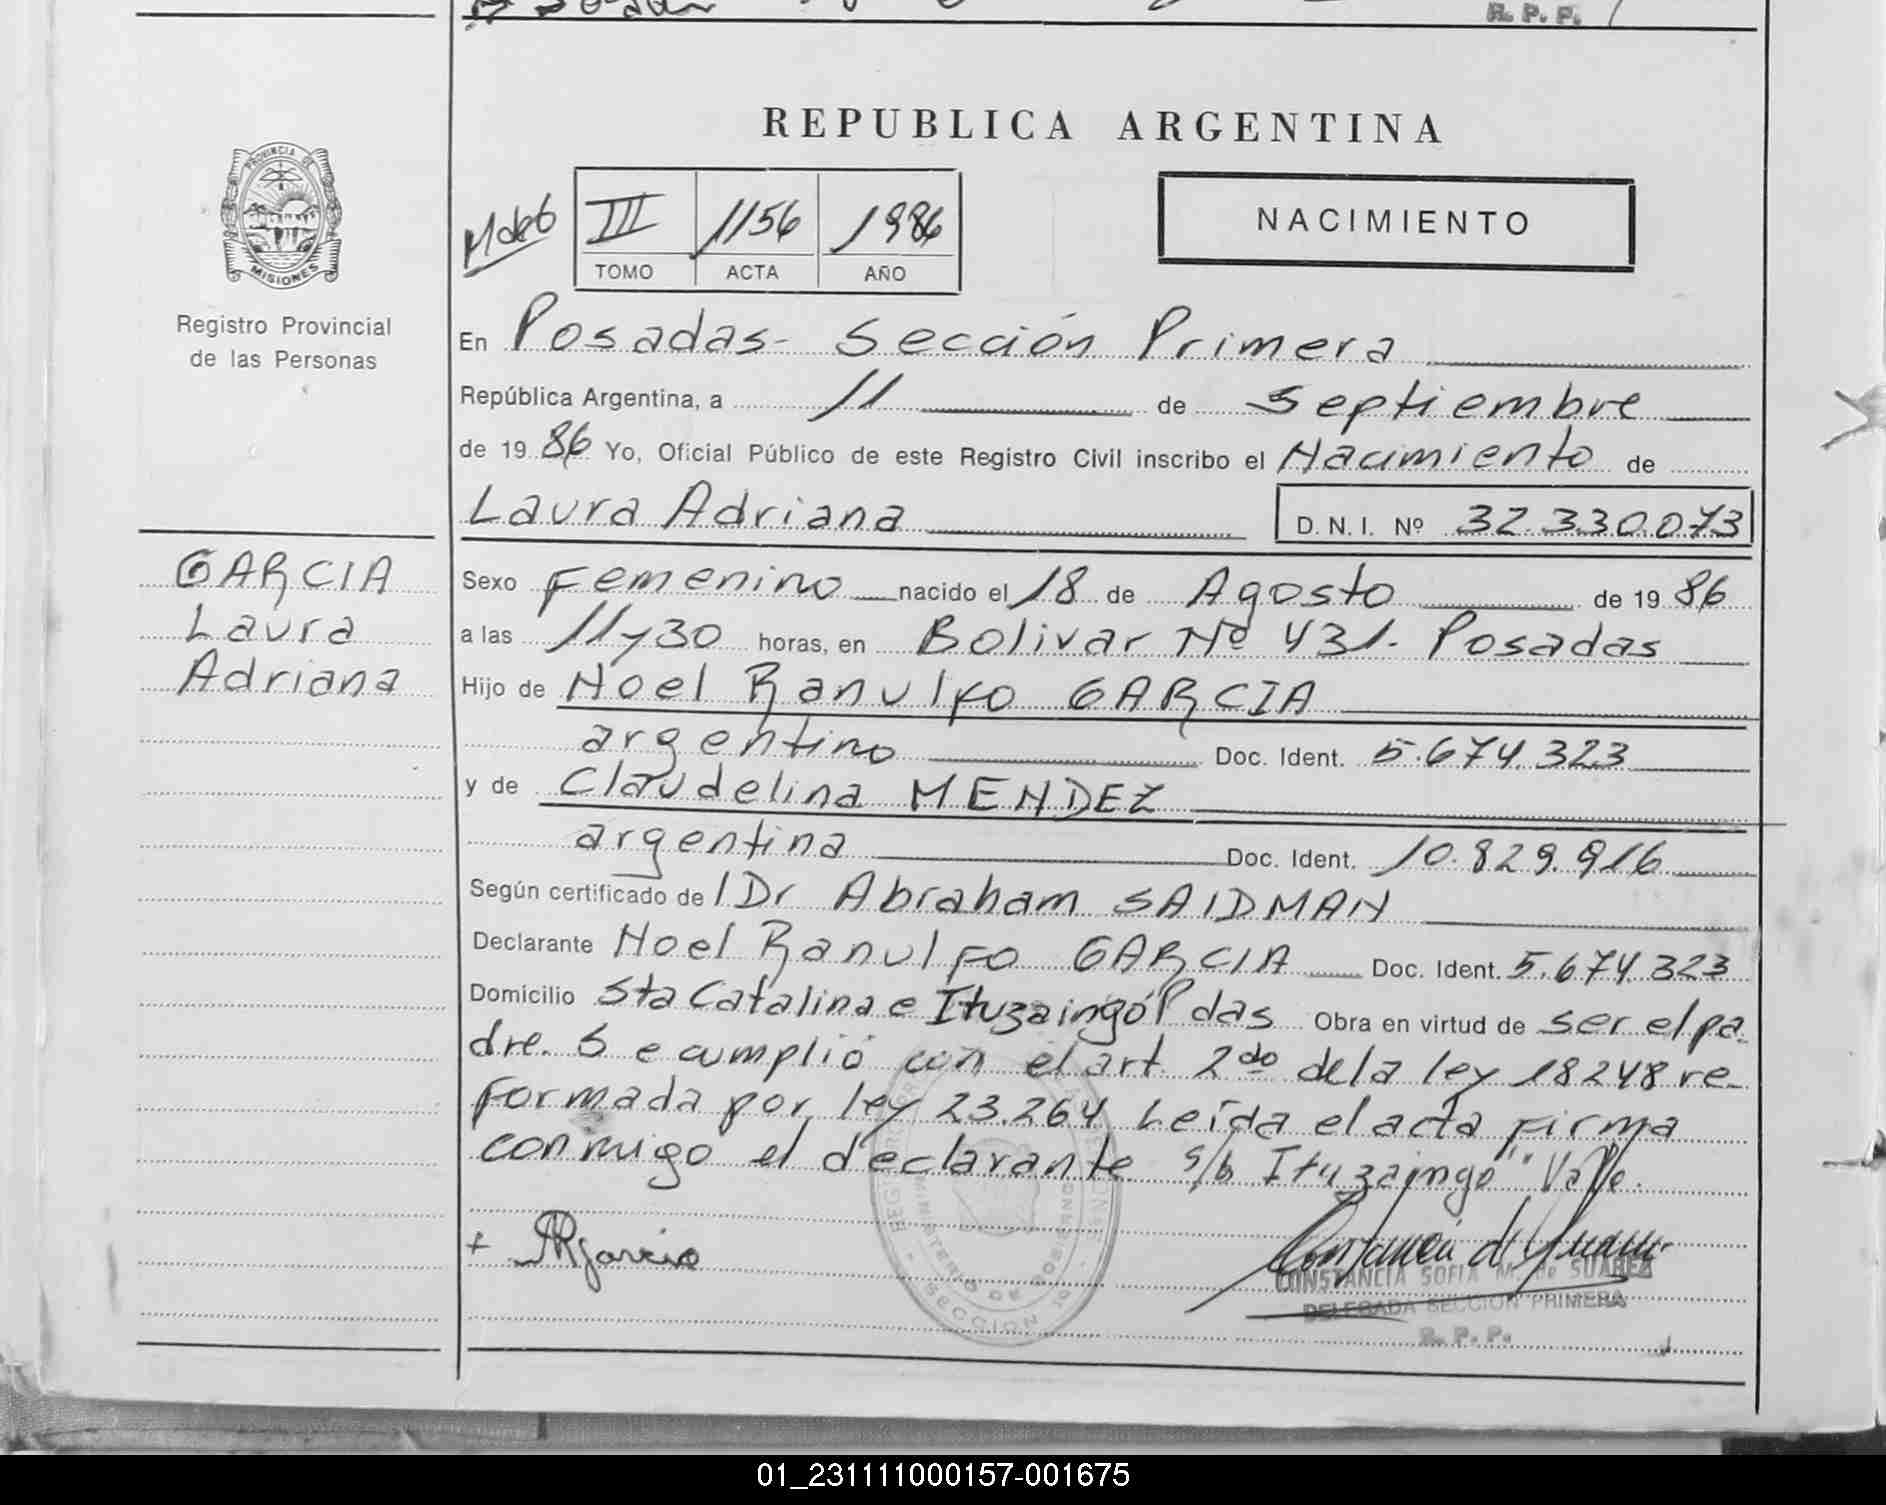 R. P. P.
REPUBLICA ARGENTINA
PROVINCIA DE
MISIONES
Registro Provincial
de las Personas
III 1156 1986
TOMO ACTA AÑO
NACIMIENTO
En Posadas - Sección Primera
República Argentina, a 11 de Septiembre
de 1986 Yo, Oficial Público de este Registro Civil inscribo el Nacimiento de
Laura Adriana D.N.I. Nº 32.330.073
GARCIA
Laura
Adriana
Sexo Femenino nacido el 18 de Agosto de 1986
a las 11 y 30 horas, en Bolivar Nº 431. Posadas
Hijo de Noel Ranulfo GARCIA
argentino Doc. Ident. 5.674.323
y de Claudelina MENDEZ
argentina Doc. Ident. 10.829.916
Según certificado de l Dr Abraham SAIDMAN
Declarante Noel Ranulfo GARCIA Doc. Ident. 5.674.323
Domicilio Sta Catalina e Ituzaingó Pdas Obra en virtud de ser el pa
dre. S e cumplió con el art 2do de la ley 18248 re
formada por ley 23.264 Leída el acta firma
conmigo el declarante s/b Ituzaingó" Valle.
+ NRGarcia
CONSTANCIA SOFIA M. de SUAREZ
DELEGADA SECCION PRIMERA
R. P. P.
MINISTERIO DE GOBIERNO
SECCION 10
01_231111000157-001675